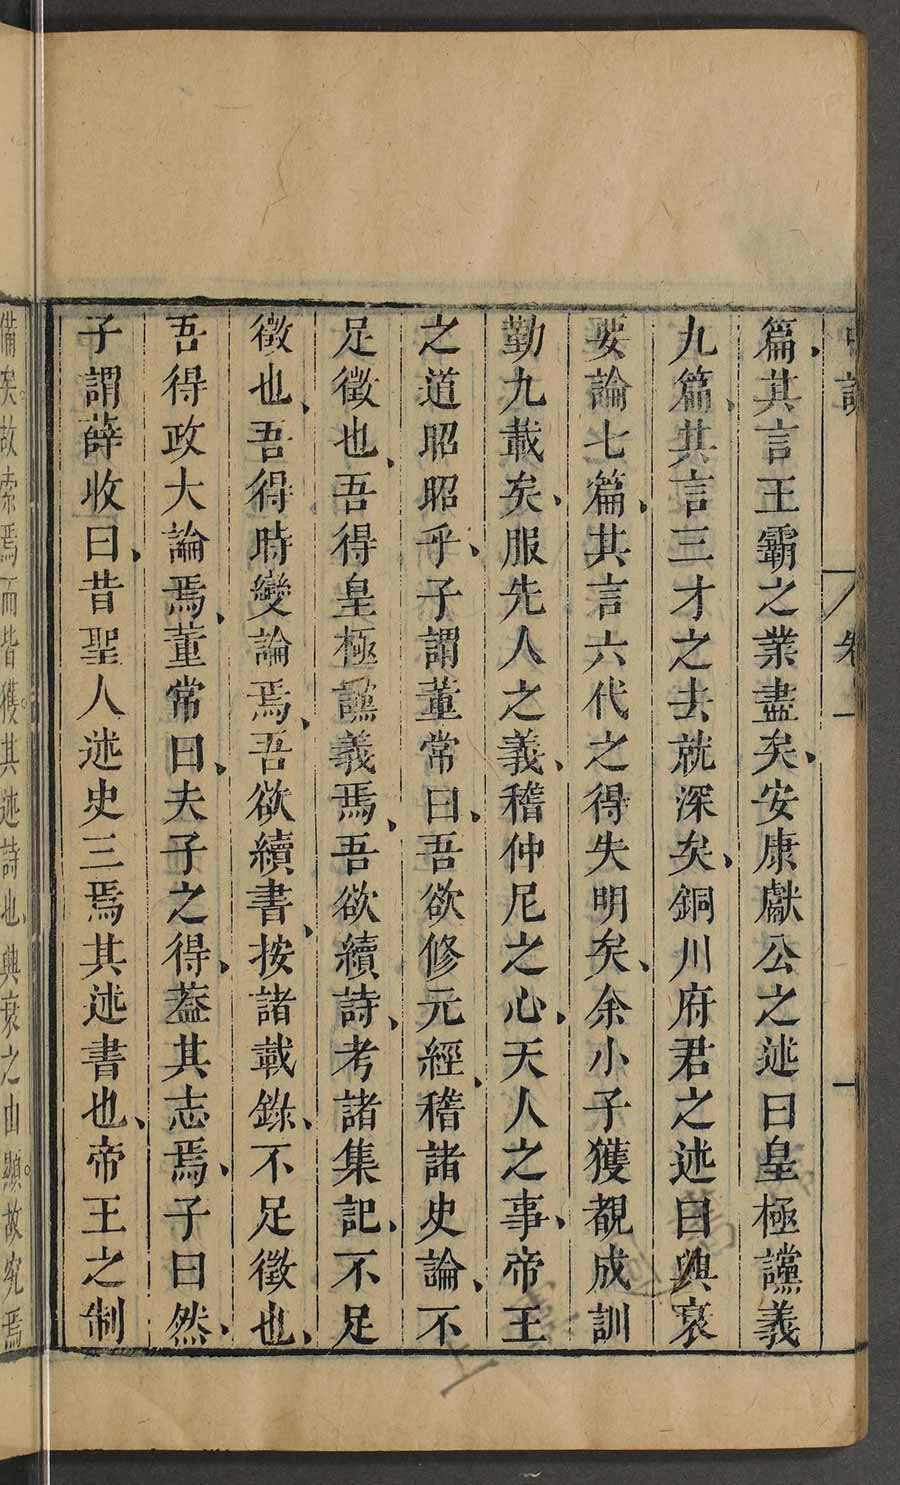 中說
卷一
篇其言王霸之業盡矣安康獻公之述曰皇極讜義
九篇其言三才之去就深矣銅川府君之述曰興衰
要論七篇其言六代之得失明矣余小子獲覩成訓
勤九載矣服先人之義稽仲尼之心天人之事帝王
之道昭昭乎子謂董常曰吾欲修元經稽諸史論不
足徵也吾得皇極讜義焉吾欲續詩考諸集記不足
徵也吾得時變論焉吾欲續書按諸載錄不足徵也
吾得政大論焉董常曰夫子之得葢其志焉子曰然
子謂薛收曰昔聖人述史三焉其述書也帝王之制
備矣故索焉而皆獲其述詩也興衰之由顯故究焉